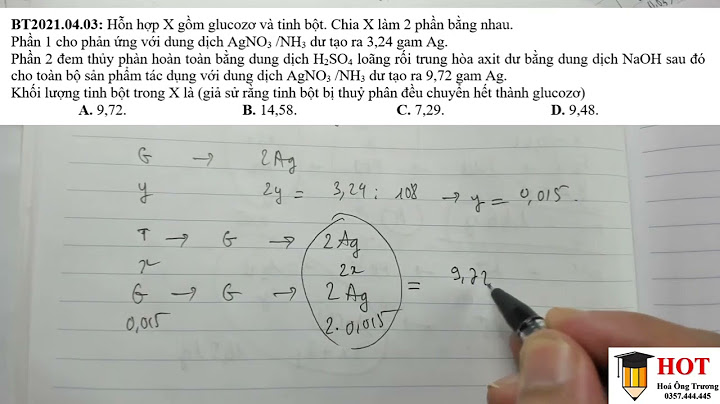 BT2021.04.03: Hỗn hợp X gồm glucozơ và tinh bột. Chia X làm 2 phần bằng nhau.
Phần 1 cho phản ứng với dung dịch AgNO₃ /NH₃ dư tạo ra 3,24 gam Ag.
Phần 2 đem thủy phàn hoàn toàn bằng dung dịch H₂SO₄ loãng rồi trung hòa axit dư bằng dung dịch NaOH sau đó
cho toàn bộ sản phẩm tác dụng với dung dịch AgNO₃ /NH₃ dư tạo ra 9,72 gam Ag.
Khối lượng tinh bột trong X là (giả sử rằng tinh bột bị thuỷ phân đều chuyển hết thành glucozơ)
A. 9,72. B. 14,58. C. 7,29. D. 9,48.
G → 2Ag
y 2y = 3,24 : 108 → y = 0,015.
T → G → 2Ag
x 2x
G → G → 2Ag = 9,72
0,015 2.0,015
HOT
Hoá Ông Trương
0357.444.445